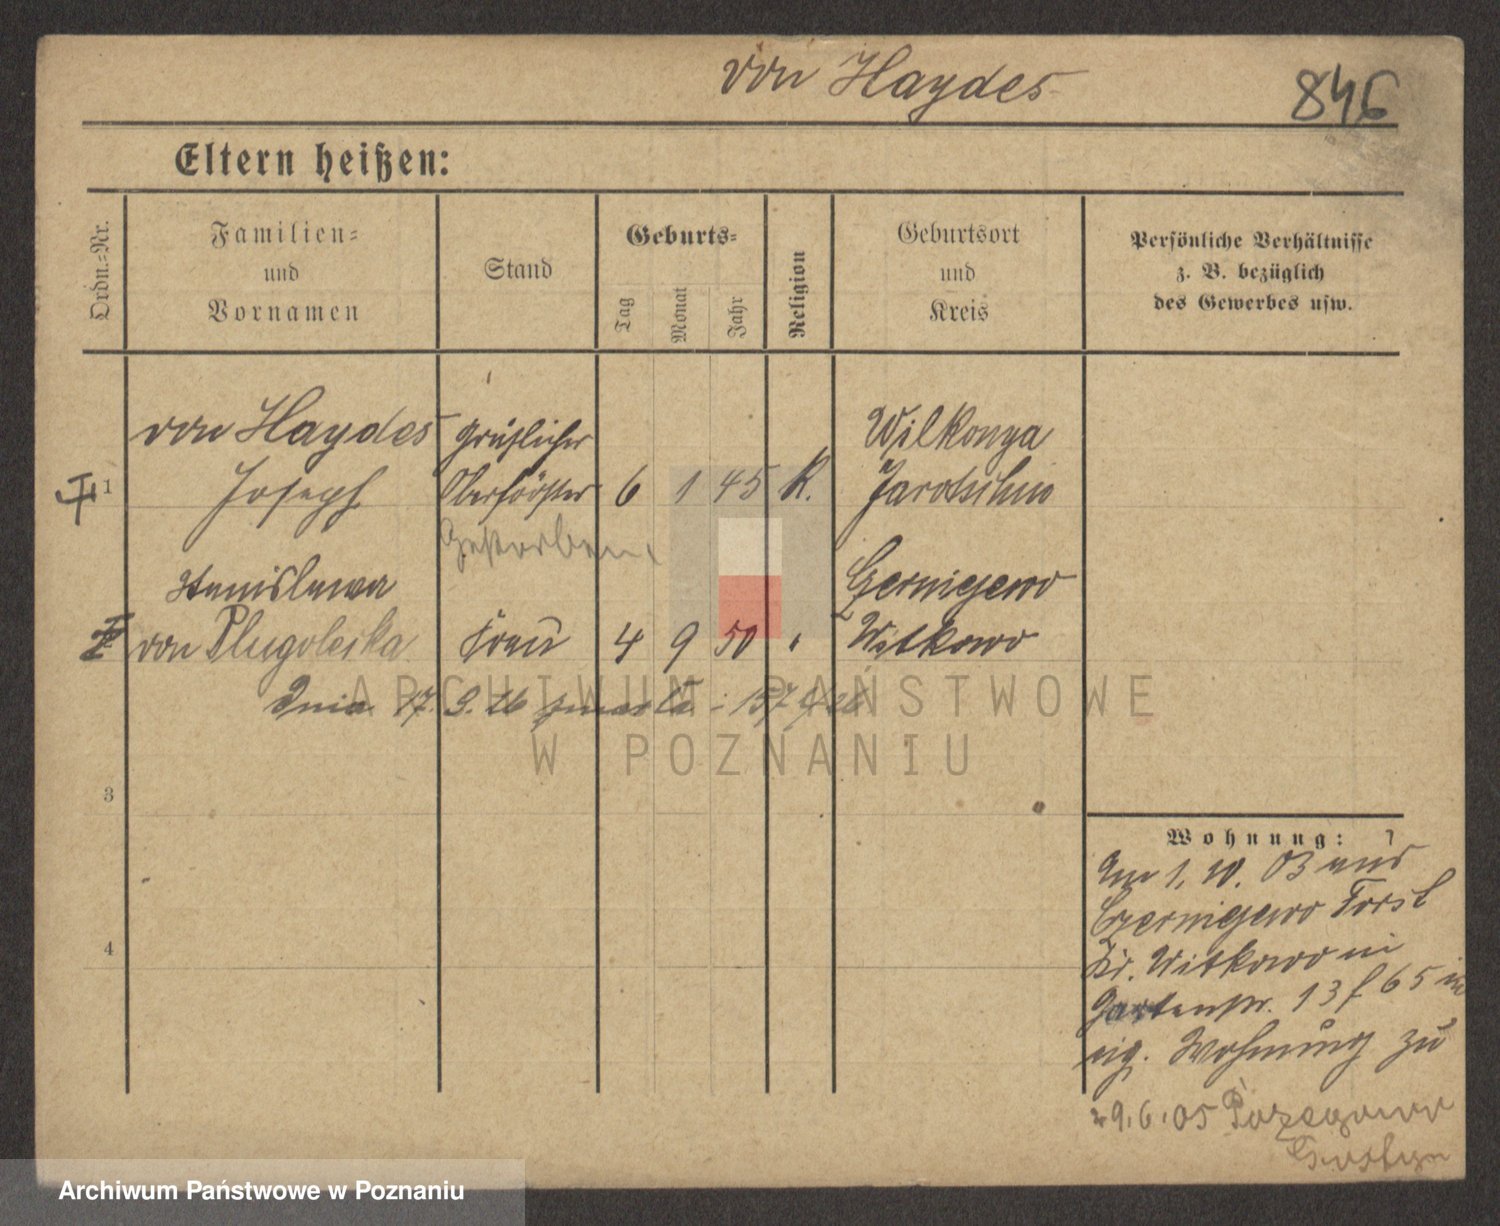 von Haydes
846
Eltern heißen:
Ordn.-Nr.
Familien-
und
Vornamen
Stand
Geburts-
Tag
Monat
Jahr
Religion
Geburtsort
und
Kreis
Persönliche Verhältnisse
z. B. bezüglich
des Gewerbes usw.
von Haydes gräflicher Wilkonya
1 Joseph Oberförster 6 1 45 K. Jarotschin
Gestorben
Stanislawa Czerniejewo
2 von Dlugoleska Frau 4 9 50 " Witkowo
Dnia 17. 9. 26 zmarła
ARCHIWUM PAŃSTWOWE
W POZNANIU
3
4
Wohnung:
Am 1. 10. 03 aus
Czerniejewo Forst
Kr. Witkowo in
Gartenstr. 13 f 65 in
eig. Wohnung zu
29.6.05 Pożegowo
Archiwum Państwowe w Poznaniu